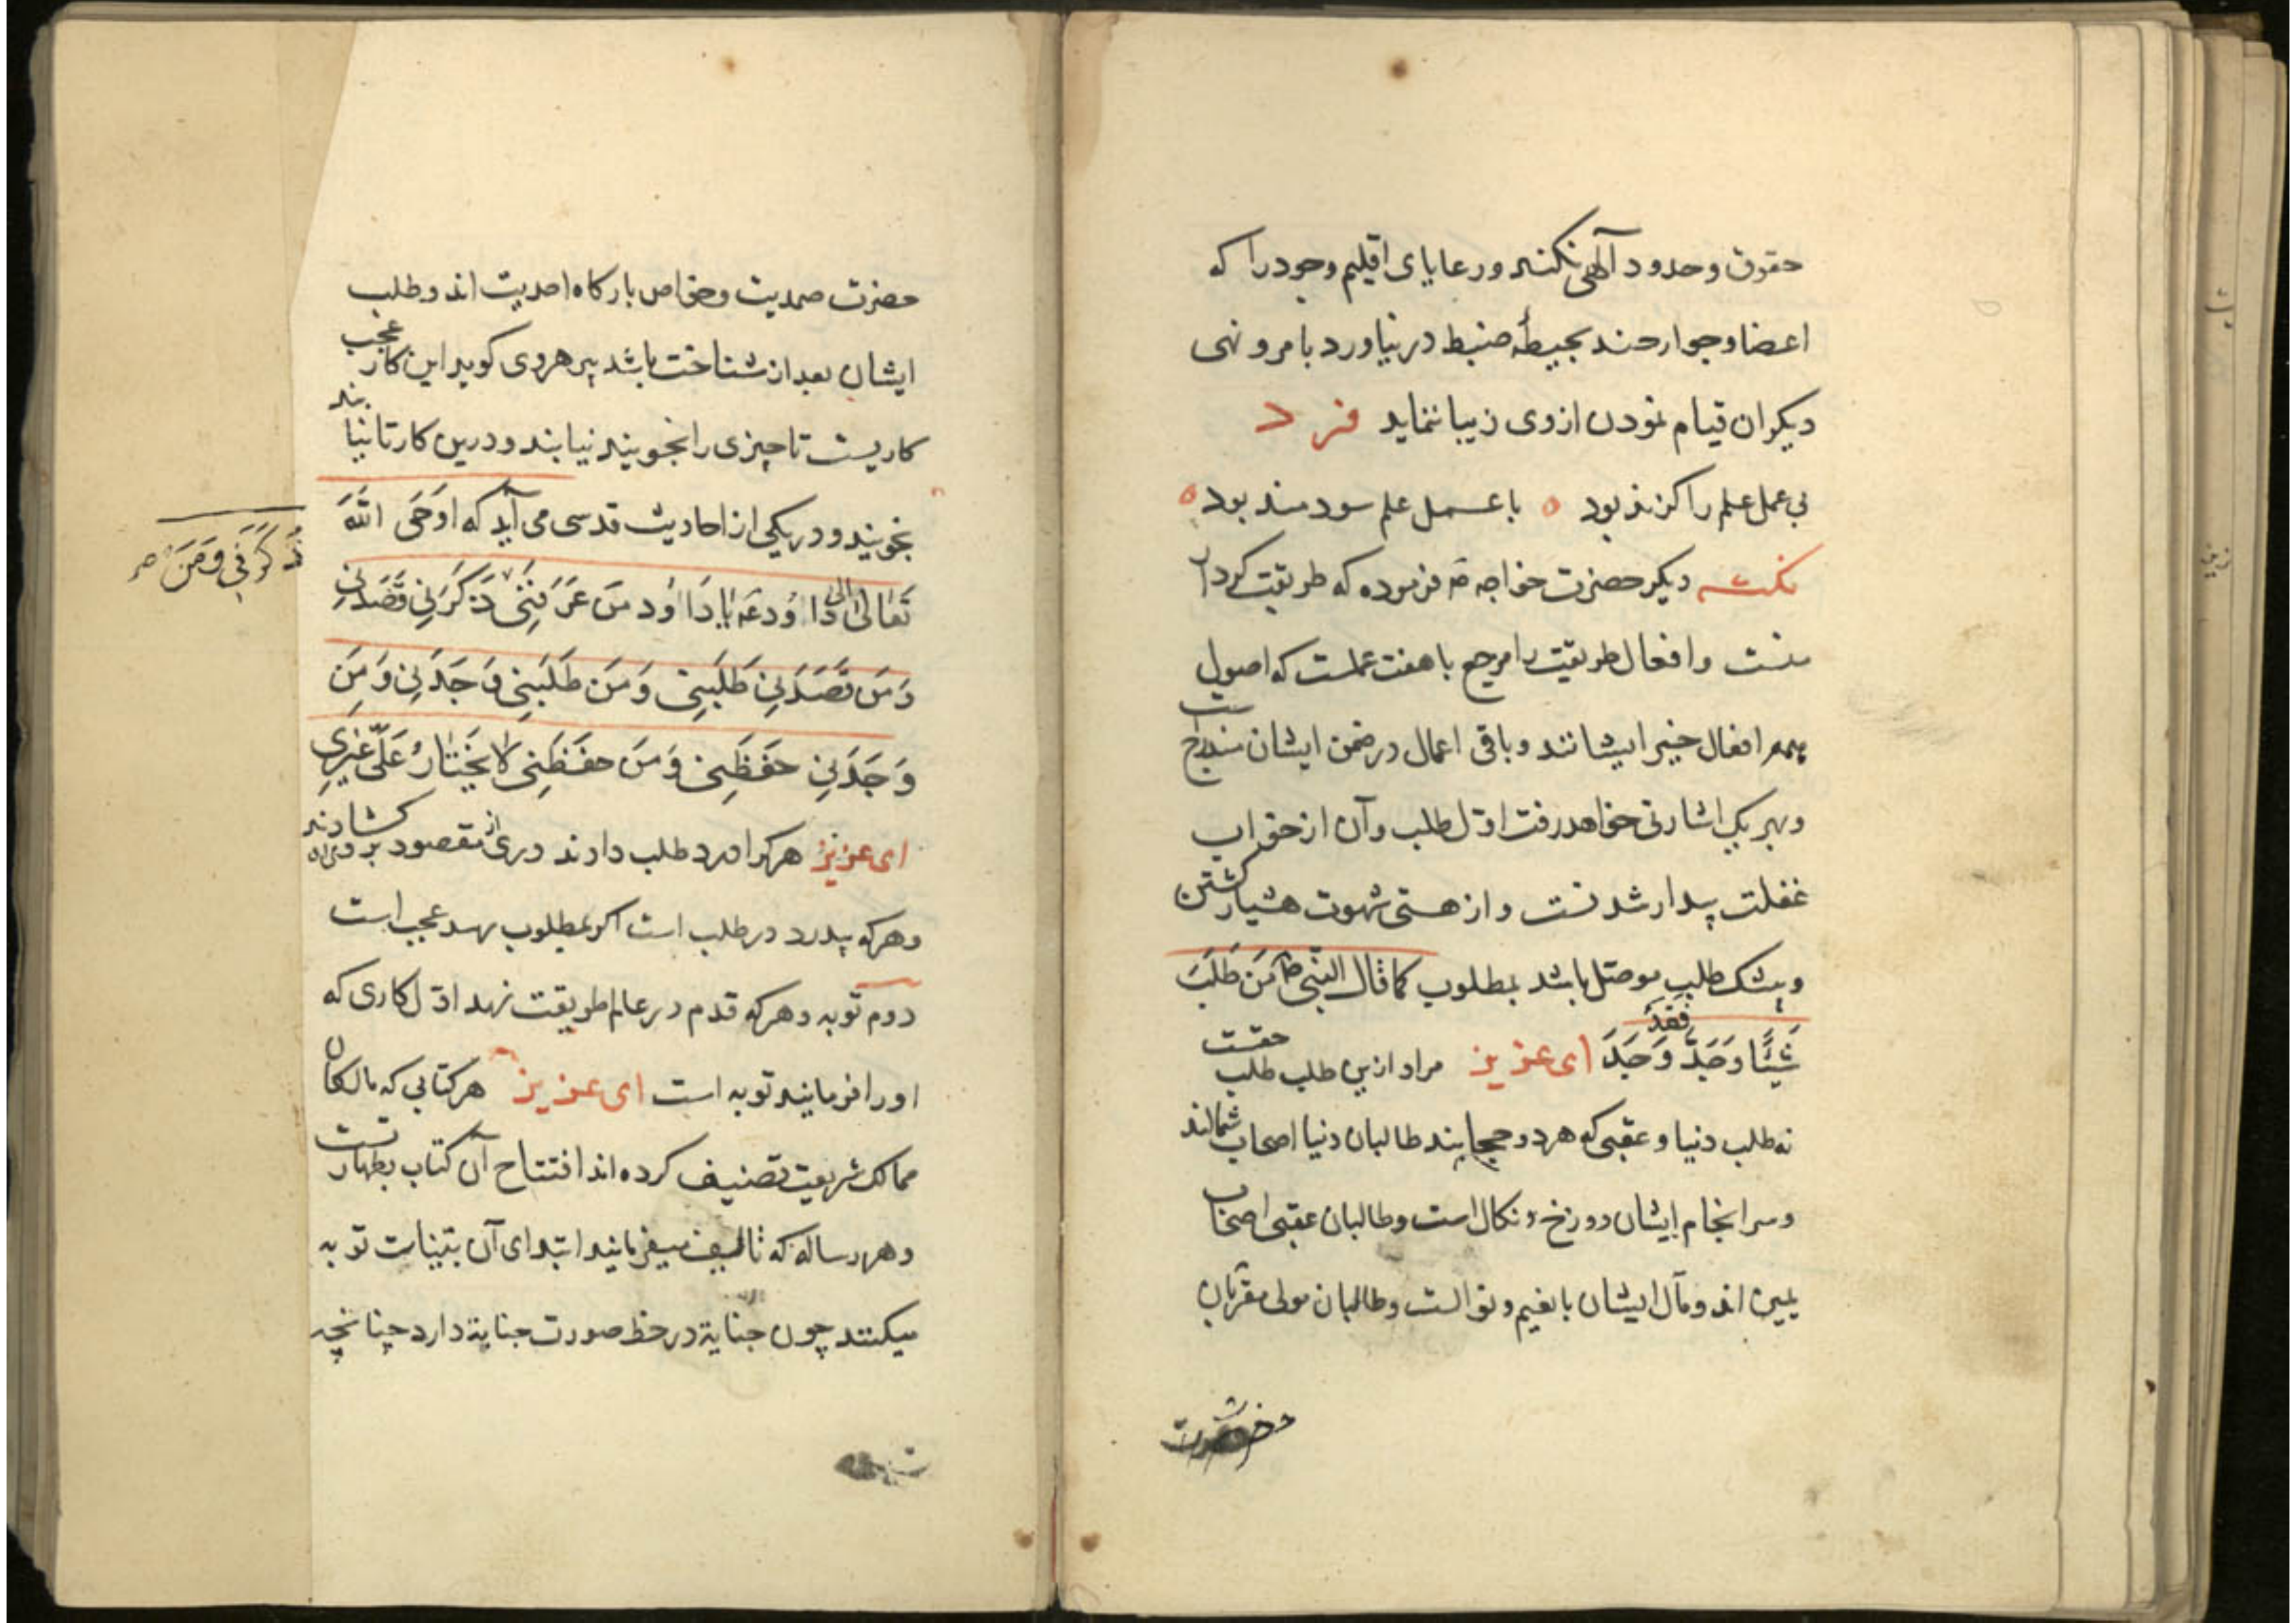 حقوق و حدود آلهی نکند و رعایای اقلیم وجود را که
اعضا و جوارحند بحیطهٔ ضبط در نیاورد بامر و نهی
دیکران قیام نمودن از وی زیبا ننماید فرد
بی عمل علم را کزند بود ه با عمل علم سودمند بود ه
نکته دیکر حضرت خواجه فرموده که طریقت کردار
منست و افعال طریقت را مرجع با هفت عملست که اصول
همه افعال خیر ایشانند و باقی اعمال در ضمن ایشان مندرجست
و بهر یک اشارتی خواهد رفت اوّل طلب و آن از خواب
غفلت بیدار شدنست و از هستی شهوت هشیار کشتن
و بیشک طلب موصل باشد بمطلوب کما قال النّبی مَن طَلَبَ
شَیئًا وَجَدَّ فَقَد وَجَدَ ای عزیز مراد ازین طلب طلب حقست
نه طلب دنیا و عقبی که هر دو حجابند طالبان دنیا اصحاب شمالند
و سرانجام ایشان دوزخ و نکال است و طالبان عقبی اصحاب
یمین اند و مآل ایشان بانعیم و نوالست و طالبان مولی مقرّبان
حضرت
حضرت صمدیت و خواص بارکاه احدیت اند و طلب
ایشان بعد از شناخت باشد پیر هروی کوید این کار عجب
کاریست تا چیزی را نجویند نیابند و درین کار تا نیابند
نجویند و در یکی از احادیث قدسی می آید که اَوحَی اللّه
تَعَالی اِلی دَاوُد یَا دَاوُد مَن عَرَفَنِی ذَکَرَنِی قَصَدَنِی
ذَکَرَنِی وَ مَن
وَ مَن قَصَدَنِی طَلَبَنِی وَ مَن طَلَبَنِی وَجَدَنِی وَ مَن
وَجَدَنِی حَفَظَنِی وَ مَن حَفَظَنِی لا یَختَارُ عَلَیَّ غَیرِی
ای عزیز هر کرا درد طلب دادند دری از مقصود بر وی کشادند
و هر که بیدرد در طلب است اکر بمطلوب رسد عجب است
دوم توبه و هر که قدم در عالم طریقت نهد اوّل کاری که
او را فرمایند توبه است ای عزیز هر کتابی که مالکان
ممالک شریعت تصنیف کرده اند افتتاح آن کتاب بطهارتست
و هر رساله که تالیف میفرمایند ابتدای آن ببینات توبه
میکنند چون جنایة در خط صورت جنابة دارد چنانچه